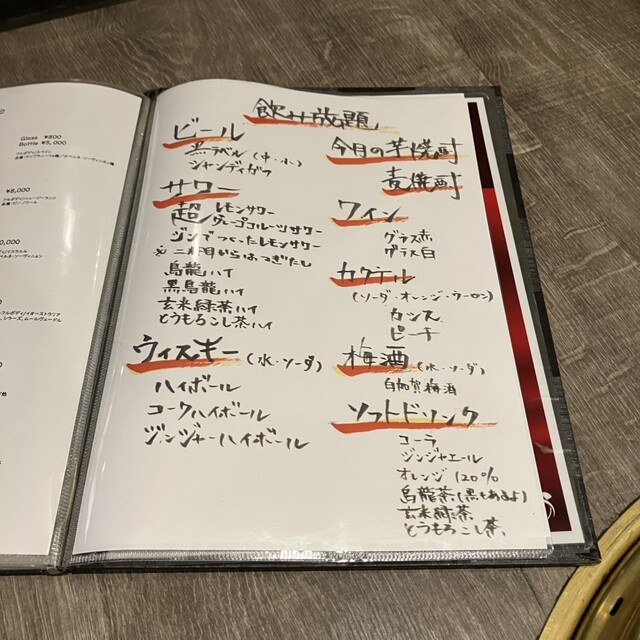 Glass ¥800
Bottle ¥5,000
¥8,000
飲み放題
ビール
黒ラベル(中・小)
シャンディガフ
サワー
超レモンサワー
超グレープフルーツサワー
ジンでつくったレモンサワー
※二杯目からはつぎたし
烏龍ハイ
黒烏龍ハイ
玄米緑茶ハイ
とうもろこし茶ハイ
ウィスキー(水・ソーダ)
ハイボール
コークハイボール
ジンジャーハイボール
今月の芋焼酎
麦焼酎
ワイン
グラス赤
グラス白
カクテル
(ソーダ・オレンジ・ウーロン)
カシス
ピーチ
梅酒(水・ソーダ)
白加賀梅酒
ソフトドリンク
コーラ
ジンジャエール
オレンジ120%
烏龍茶(黒もあるよ)
玄米緑茶
とうもろこし茶